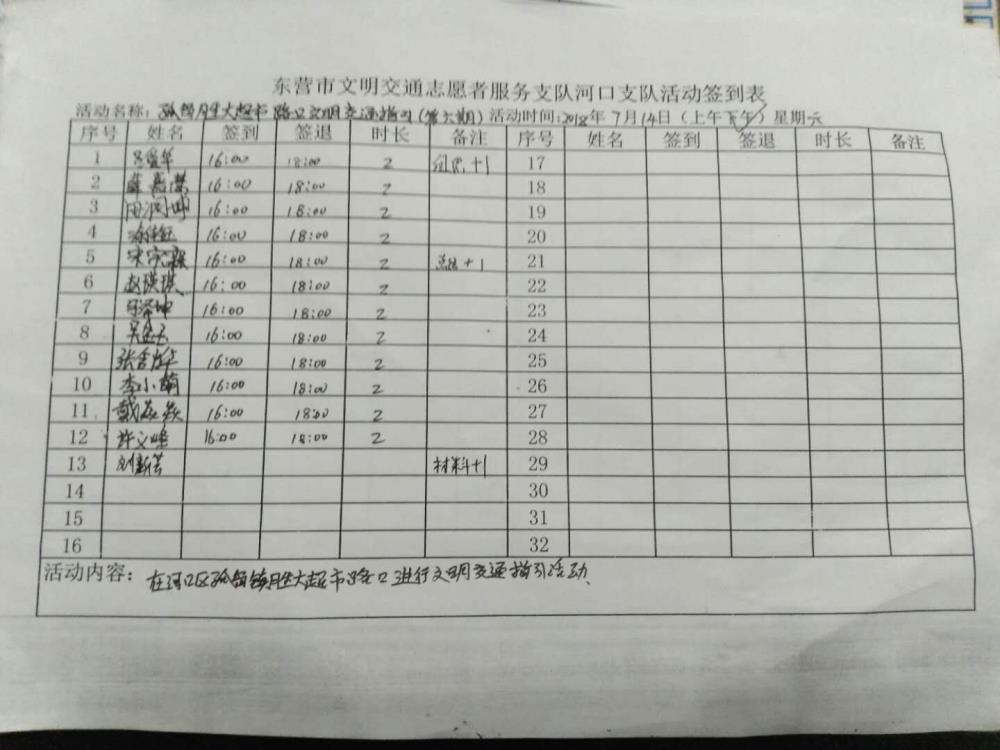 东营市文明交通志愿者服务支队河口支队活动签到表
活动名称: 孤岛镇胜大超市路口文明交通指引(第六期) 活动时间:2018年 7月14日(上午 下午) 星期六
序号 姓名 签到 签退 时长 备注 序号 姓名 签到 签退 时长 备注
1 16:00 18:00 2 组织+1 17
2 16:00 18:00 2 18
3 16:00 18:00 2 19
4 16:00 18:00 2 20
5 16:00 18:00 2 总结+1 21
6 赵瑛琪 16:00 18:00 2 22
7 16:00 18:00 2 23
8 16:00 18:00 2 24
9 16:00 18:00 2 25
10 李小萌 16:00 18:00 2 26
11 戴焱焱 16:00 18:00 2 27
12 许文峰 16:00 18:00 2 28
13 材料+1 29
14 30
15 31
16 32
活动内容: 在河口区孤岛镇胜大超市路口进行文明交通指引活动